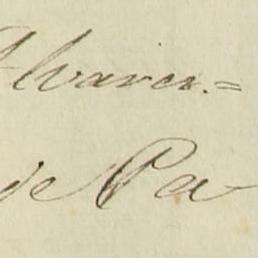 Alvares.=
de Pa